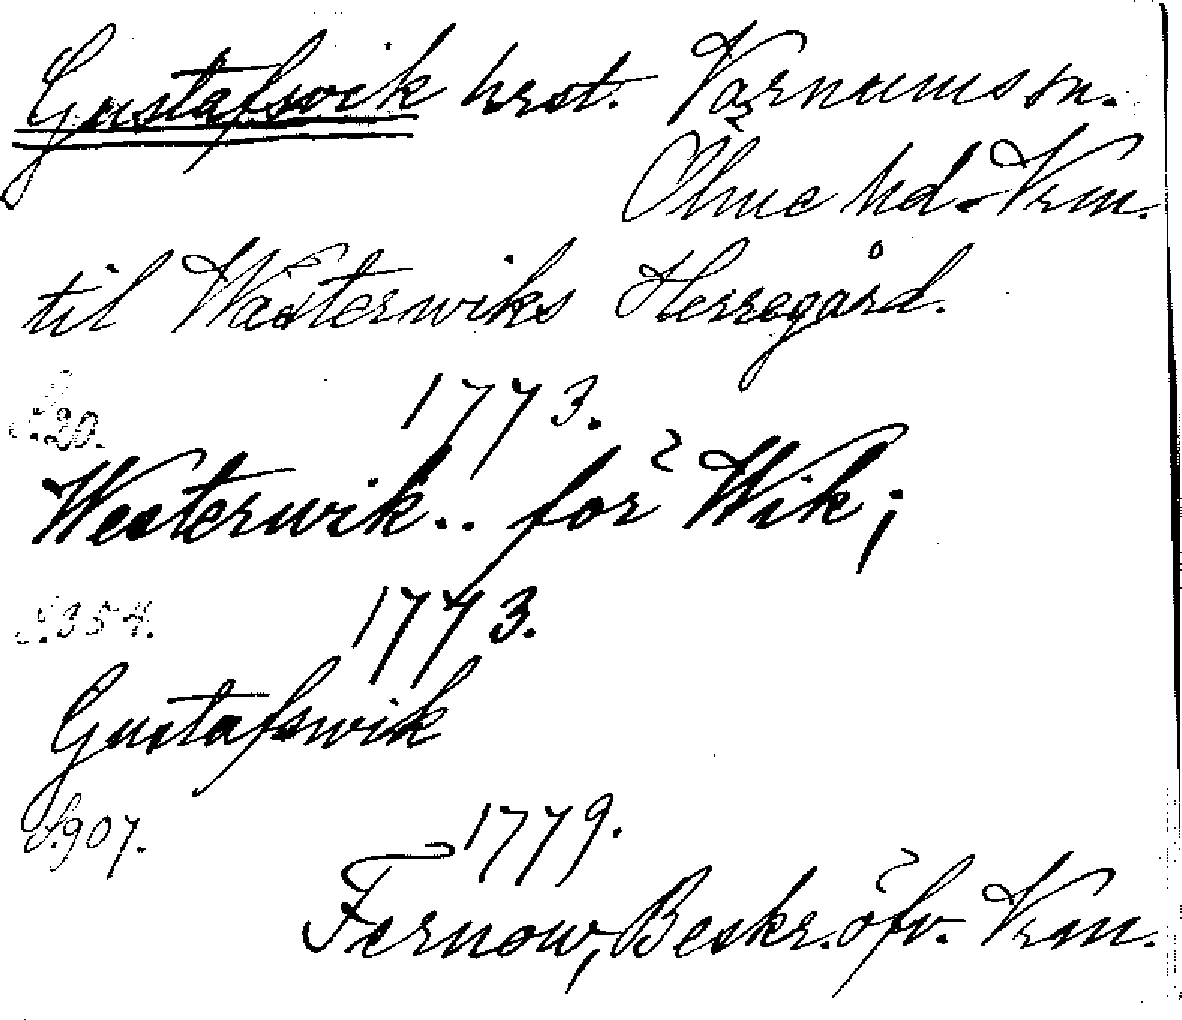 Gustafswik hrst. Varnums sn.
Ölme hd. Vrm.
til Wästerwiks Herregård.
S. 20. 1773.
Westerwik.. för Wik;
S. 354. 1773.
Gustafswik
S. 907. 1779.
Fernow, Beskr. öfv. Vrm.